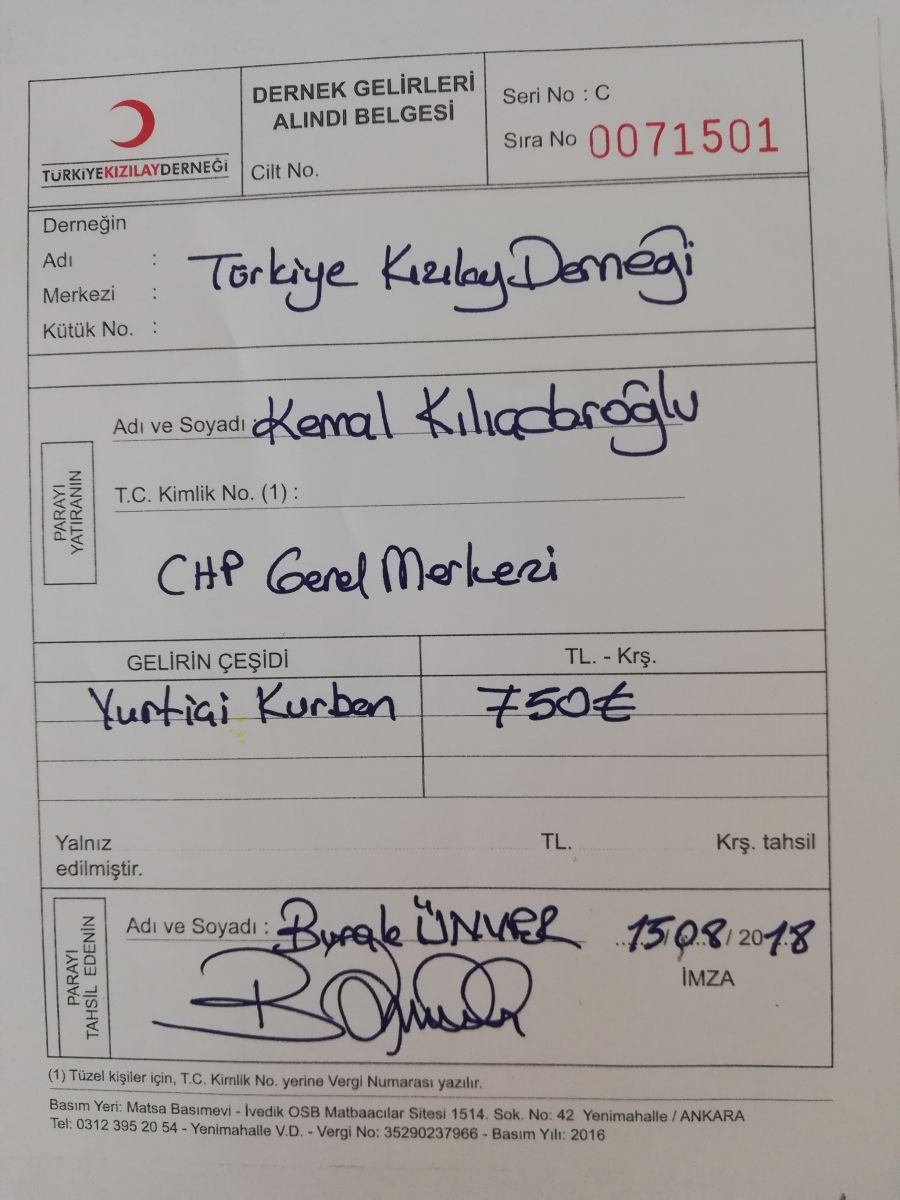 TÜRKİYEKIZILAYDERNEĞİ
DERNEK GELİRLERİ
ALINDI BELGESİ
Cilt No.
Seri No : C
Sıra No 0071501
Derneğin
Adı :
Merkezi :
Kütük No. :
Türkiye Kızılay Derneği
PARAYI
YATIRANIN
Adı ve Soyadı : Kemal Kılıçdaroğlu
T.C. Kimlik No. (1) :
CHP Genel Merkezi
GELİRİN ÇEŞİDİ TL. - Krş.
Yurtiçi Kurban 750₺
Yalnız TL. Krş. tahsil
edilmiştir.
PARAYI
TAHSİL EDENİN
Adı ve Soyadı : Burak ÜNVER 15/08/2018
İMZA
(1) Tüzel kişiler için, T.C. Kimlik No. yerine Vergi Numarası yazılır.
Basım Yeri: Matsa Basımevi - İvedik OSB Matbaacılar Sitesi 1514. Sok. No: 42 Yenimahalle / ANKARA
Tel: 0312 395 20 54 - Yenimahalle V.D. - Vergi No: 35290237966 - Basım Yılı: 2016